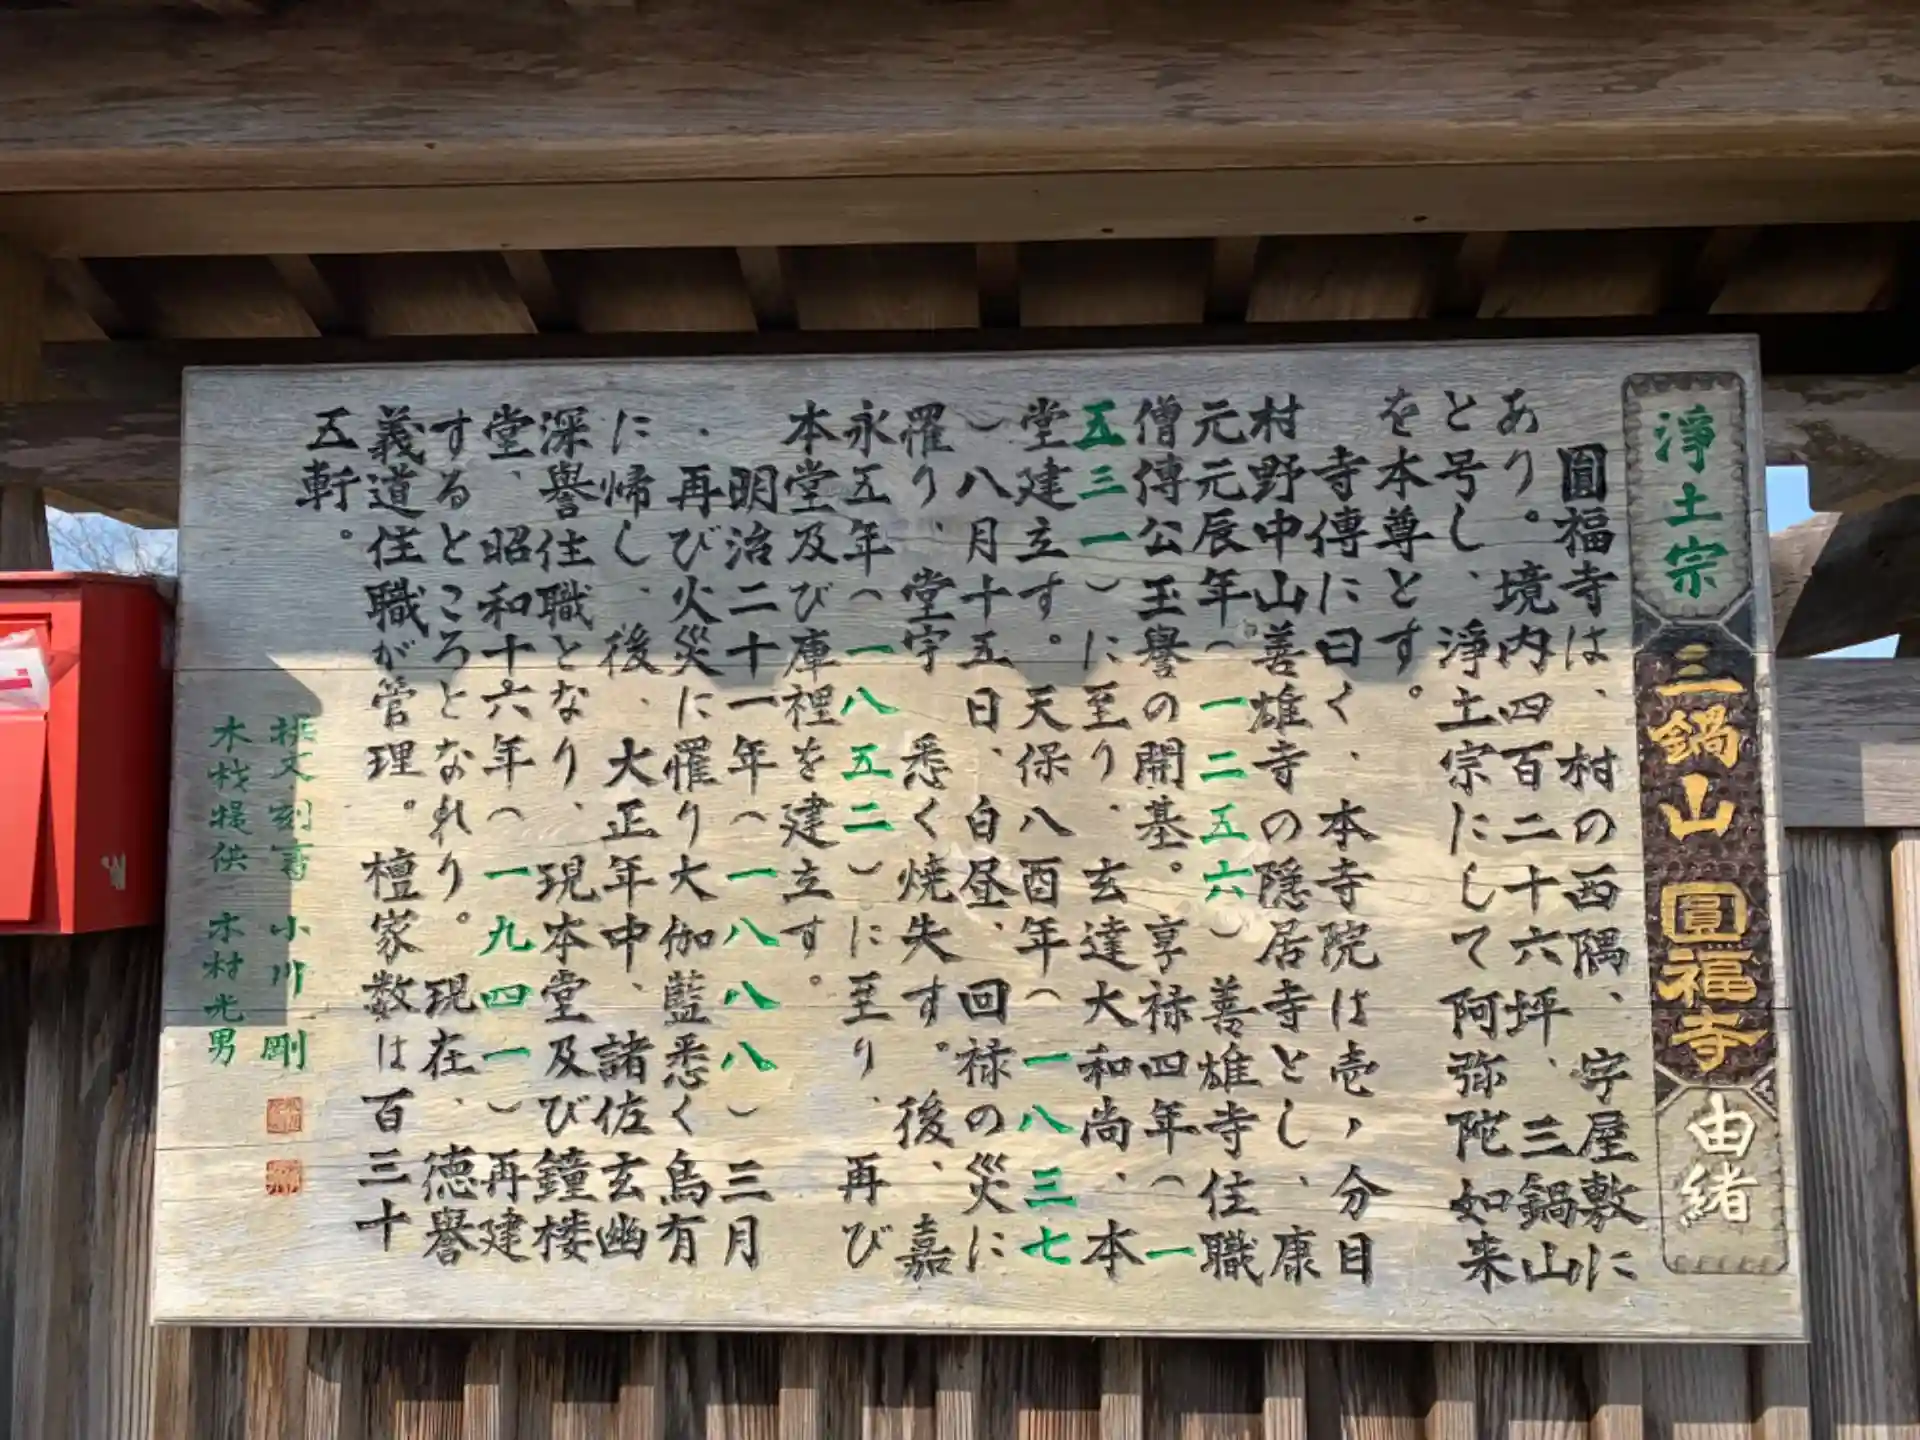 淨土宗 三鍋山 圓福寺 由緒
圓福寺は、村の西隅、字屋敷に
あり。境内四百二十六坪、三鍋山
と号し、淨土宗にして阿弥陀如来
を本尊とす。
寺傳に曰く、本寺院は壱ヶ分目
村野中山善雄寺の隠居寺とし、康
元元辰年(一二五六)善雄寺住職
僧傳公玉譽の開基。享禄四年(一
五三一)に至り、玄達大和尚、本
堂建立す。天保八酉年(一八三七
)八月十五日、白昼、回禄の災に
罹り、堂宇悉く焼失す。後、嘉
永五年(一八五二)に至り、再び
本堂及び庫裡を建立す。
明治二十一年(一八八八)三月
・再び火災に罹り大伽藍悉く烏有
に帰し、後、大正年中、諸佐玄幽
深譽住職となり、現本堂及び鐘楼
堂、昭和十六年(一九四一)再建
するところとなれり。現在、徳譽
義道住職が管理。檀家数は百三十
五軒。
撰文刻書 小川 剛
木材提供 木村光男